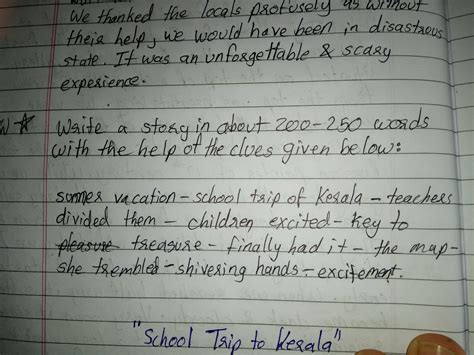 We thanked the locals profusely as without
their help, we would have been in disastrous
state. It was an unforgettable & scary
experience.
W ☆ Write a story in about 200-250 words
with the help of the clues given below:
summer vacation - school trip of Kerala - teachers
divided them - children excited - key to
pleasure treasure - finally had it - the map -
she trembled - shivering hands - excitement.
"School Trip to Kerala"